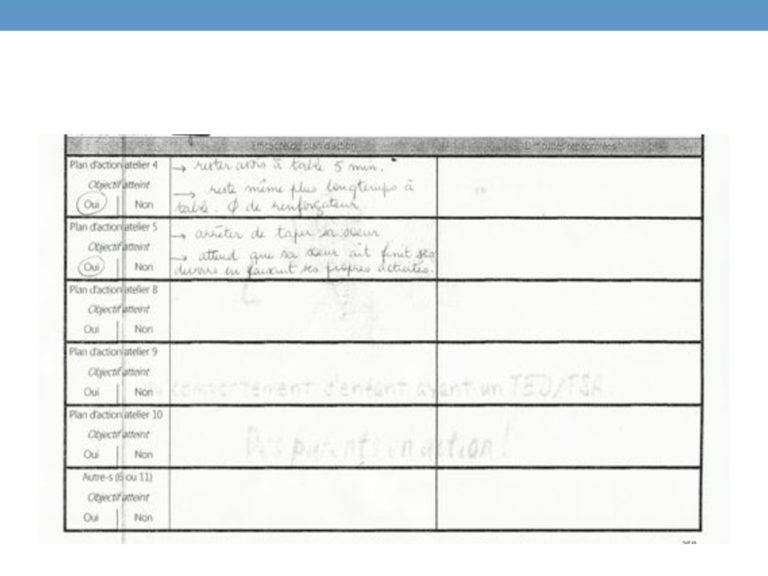 Efficacité du plan d'action
Difficultés rencontrées
Plan d'action atelier 4
Objectif atteint
Oui | Non
→ rester assis à table 5 min.
→ reste même plus longtemps à
table. Ø de renforçateur.
Plan d'action atelier 5
Objectif atteint
Oui | Non
→ arrêter de taper sa soeur
→ attend que sa soeur ait finit ses
devoirs en faisant ses propres activités.
Plan d'action atelier 8
Objectif atteint
Oui | Non
Plan d'action atelier 9
Objectif atteint
Oui | Non
comportement d'enfant ayant un TED/TSA
Plan d'action atelier 10
Objectif atteint
Oui | Non
Des parents en action!
Autre-s (6 ou 11)
Objectif atteint
Oui | Non